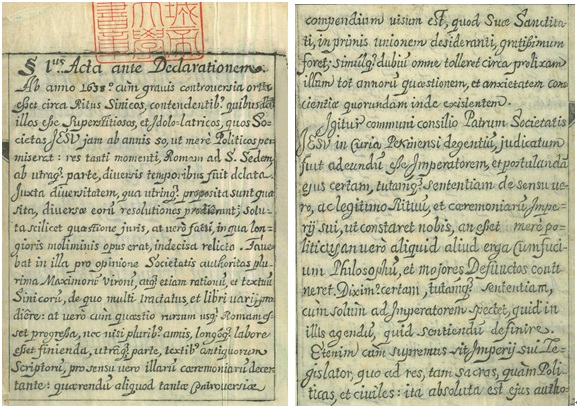 城帝
大學
書章
§ 1.us Acta ante Declarationem.
Ab anno 1638.° cum grauis controversia orta
esset circa Ritus Sinicos, contendentib9 quibusdā
illos esse Superstitiosos, et Idolo-latricos, quos So-
cietas JESV jam ab annis 50, ut merè Politicos per-
miserat: res tanti momenti, Romam ad S. Sedem
ab utraq; parte, diversis temporibus fuit delata.
Juxta diversitatem, qua utrinq; proposita sunt quæ
sita, diversæ eorū resolutiones prodierunt; solu-
ta scilicet quæstione juris, at verò facti, in qua lon-
gioris moliminis opus erat, indecisa relicta. Faue
bat in illa pro opinione Societatis authoritas plu-
rima Maximorū Virorū, atq; etiam rationū, et textuū
Sinicorū, de quo multi tractatus, et libri varij pro-
diêre: at verò cum quæstio rursum usq; Romam es-
set progressa, nec nisi plurib9 annis, longoq; labore
esset finienda, utraq; parte, textib9 antiquorum
Scriptorū, pro sensu vero illarū cæremoniarū decer
tante: quærendū aliquod tantæ Controversiæ
compendium uisum est, quod Suæ Sanctita-
ti, in primis unionem desideranti, gratissimum
foret; simulq; dubiū omne tolleret circa prolixam
illam tot annorū quæstionem, et anxietatem con-
cientiæ quorundam inde existentem.
Igitur communi consilio Patrum Societatis
JESV in Curia Pekinensi degentiū, judicatum
fuit adeundū esse Imperatorem, et postulandā
ejus certam, tutamq; sententiam de sensu ve-
ro, ac legitimo Rituū, et cæremoniarū Impe-
rij sui, ut constaret nobis, an esset merè po-
liticus an verò aliquid aliud erga Cumfuci-
um Philosophū, et majores Defunctos conti
neret. Diximus certam, tutamq; sententiam,
cùm solum ad Imperatorem spectet, quid in
illis agendū, quid sentiendū definire.
Etenim cùm supremus sit Imperij sui Le-
gislator, quo ad res, tam sacras, quàm Poli-
ticas, et civiles: ita absoluta est ejus autho-